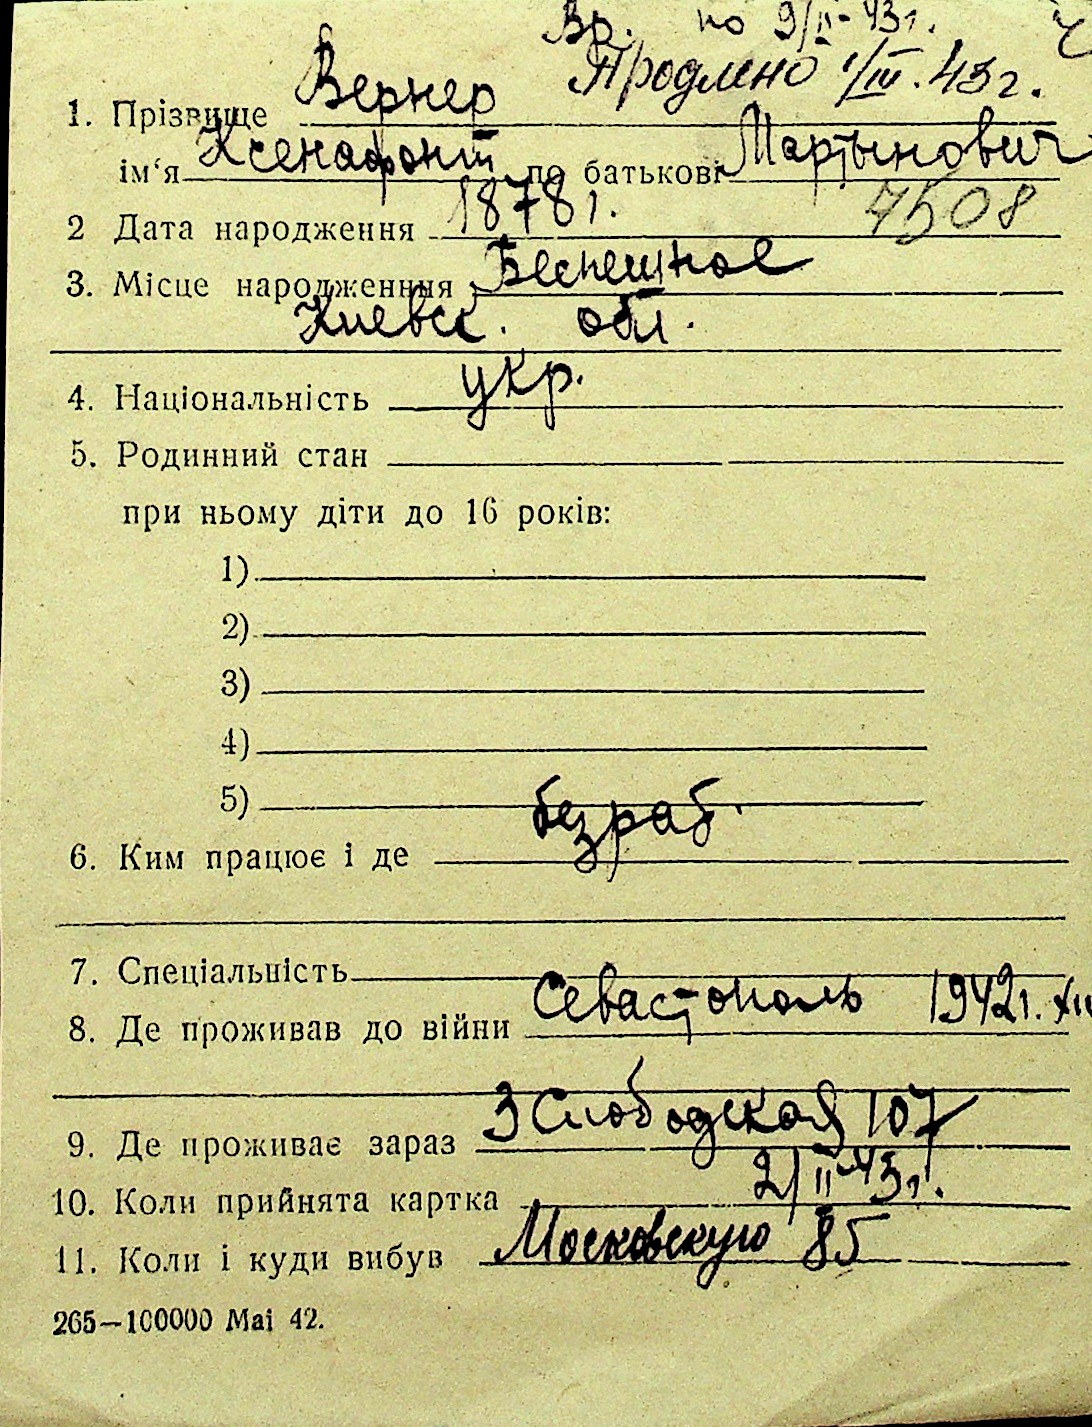 Вр. по 9/II-43г.
Продлено 1/III.43г.
1. Прізвище Вернер
ім'я Ксенафонт по батькові Мартынович
2 Дата народження 1878г. 7508
3. Місце народженння Беспешное
Киевск. обл.
4. Національність укр.
5. Родинний стан
при ньому діти до 16 років:
1)
2)
3)
4)
5)
6. Ким працює і де безраб.
7. Спеціальність
8. Де проживав до війни Севастополь 1942г. XII
9. Де проживає зараз 3 Слободская 107
10. Коли прийнята картка 2/II-43г.
11. Коли і куди вибув Московскую 85
265—100000 Маі 42.